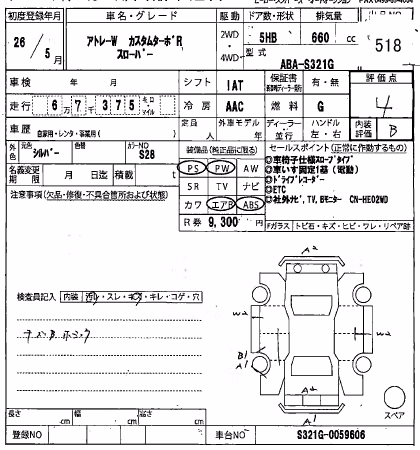 初度登録年月 車名・グレード 駆動 ドア数・形状 排気量
26/5月 アトレーW カスタムターボR スローパー 2WD・4WD 5HB 660cc 518
型式 ABA-S321G
車検 年 月 シフト IAT 保証書 有・無 評価点
走行 67375 キロ マイル 冷房 AAC 燃料 G 4
車歴 自家用・レンタ・事業用( ) 定員 人 外車モデル 年 ディーラー・並行 ハンドル 左・右 内装評価 B
外色 元色 シルバー 色替 カラーNO S28 装備品(純正品に限る) セールスポイント(正常に作動するもの)
名義変更期限 月 日 積載 t PS PW AW
◎車椅子仕様スロープタイプ
◎車いす固定1基(電動)
注意事項(欠品・修復・不具合箇所および状態) SR TV ナビ
◎ドライブレコーダー
◎ETC
カワ エアB ABS
◎社外ナビ,TV,Bモニター CN-HE02WD
R券 9,300円 Fガラス トビ石・キズ・ヒビ・ワレ・リペア跡
A2
検査員記入 内装 汚れ・スレ・キズ・キレ・コゲ・穴
W2 W2
B1
A1
A2
A1
スペア
長さ cm 幅 cm 高さ cm
登録NO 車台NO S321G-0059606